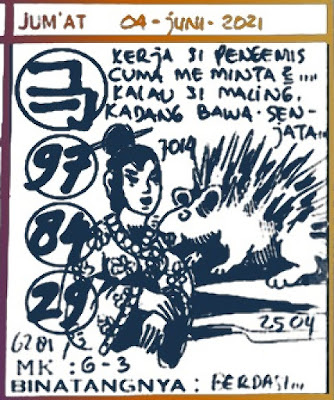 JUM'AT 04-JUNI-2021
KERJA SI PENGEMIS
CUMA ME MINTA 2 ....
KALAU SI MALING,
KADANG BAWA-SEN-
JATA...
7014
97
84
29
2504
6281/2
MK : 6-3
BINATANGNYA : BERDASI...